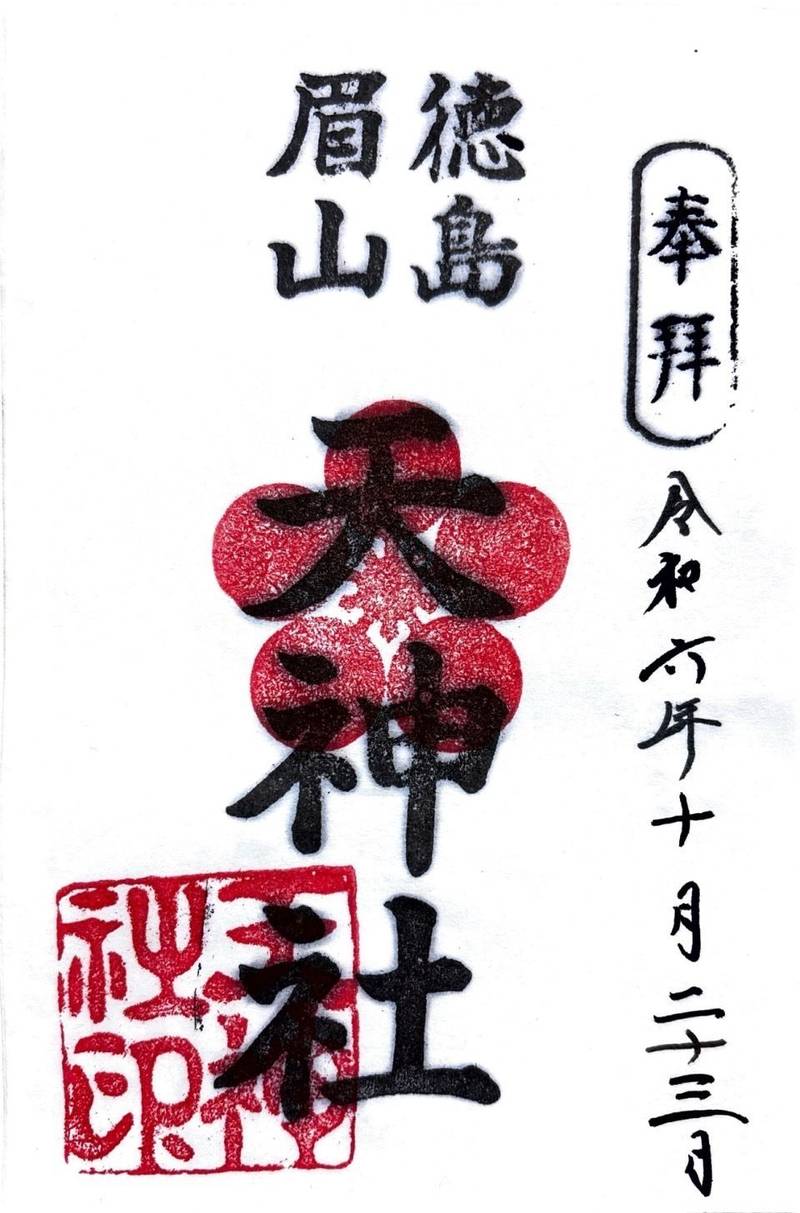 奉拝
令和六年十月二十三日
徳島
眉山
天神社
天神
社印